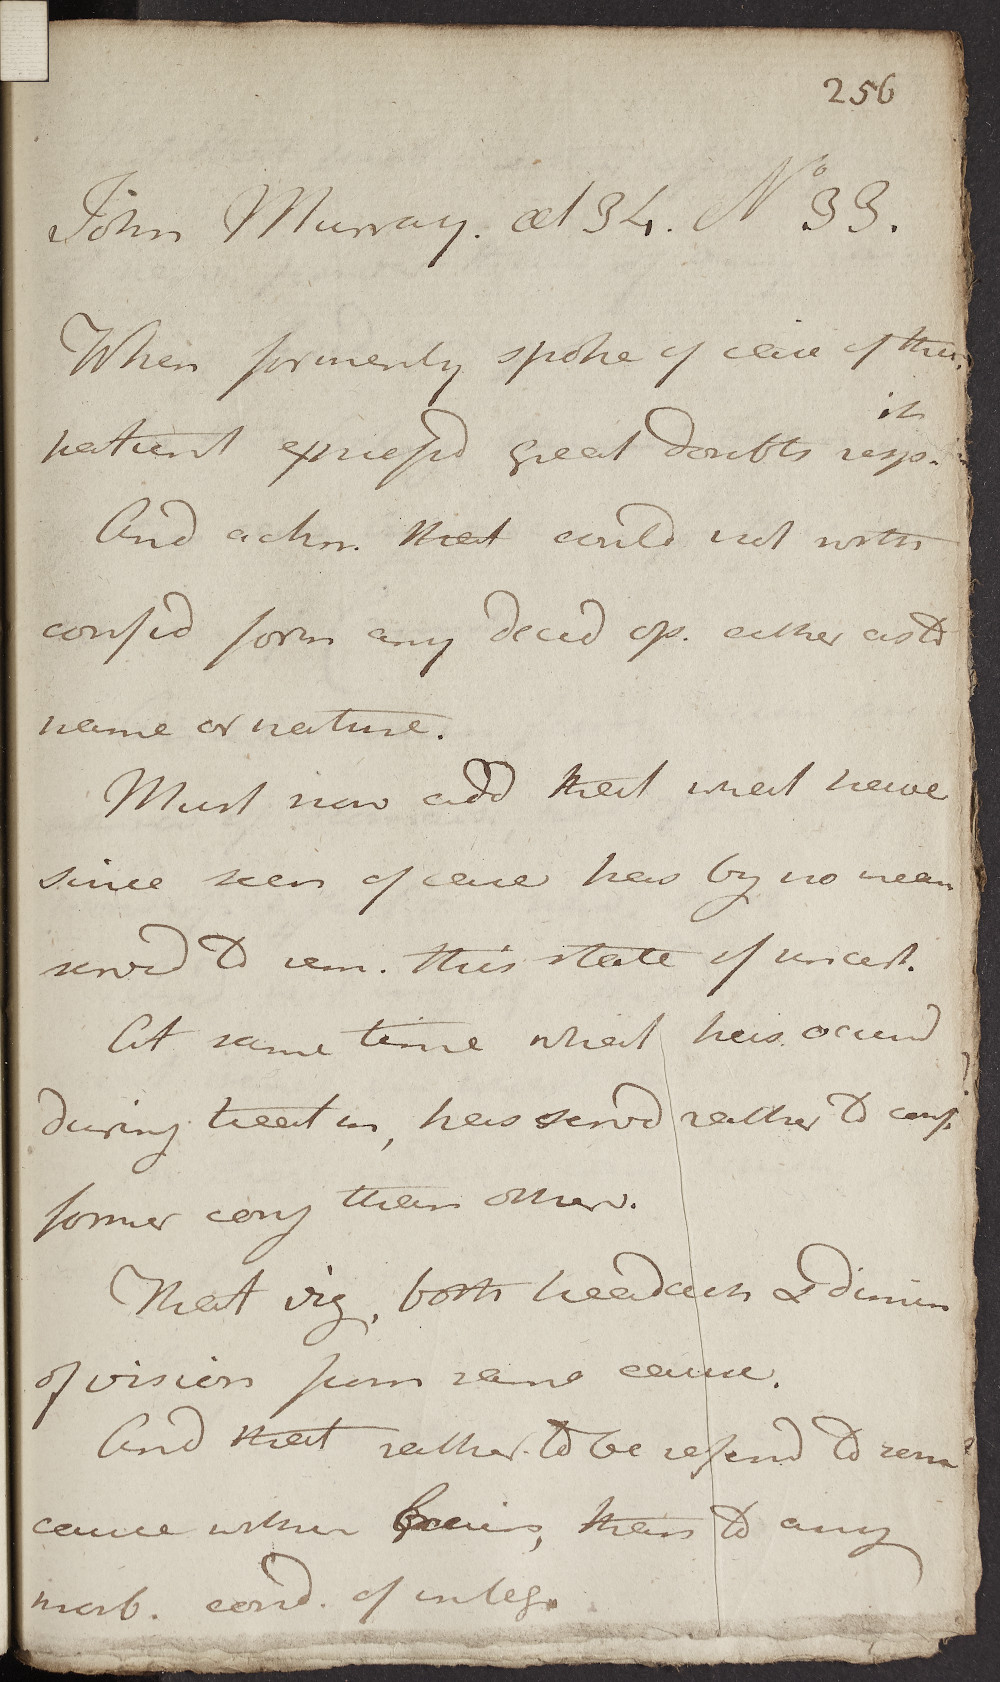 256
John Murray. æt 34. No 33.
When formerly spoke of case of this
patient express'd great doubts resp. it
And ackn. that could not with
confid form any decid op. either as to
name or nature.
Must now add that what have
since seen of case has by no mean
serv'd to rem. this state of uncert.
At same time what has occurd
during treatm, has serv'd rather to conf.
former conj than other.
That viz, both headach & dimin
of vision from same cause.
And that rather to be referd to some
cause within Cranio, than to any
morb. cond. of integ.